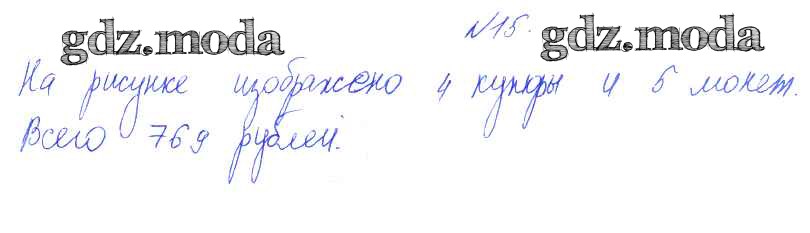 gdz.moda №15. gdz.moda
На рисунке изображено 4 купюры и 5 монет.
Всего 769 рублей.